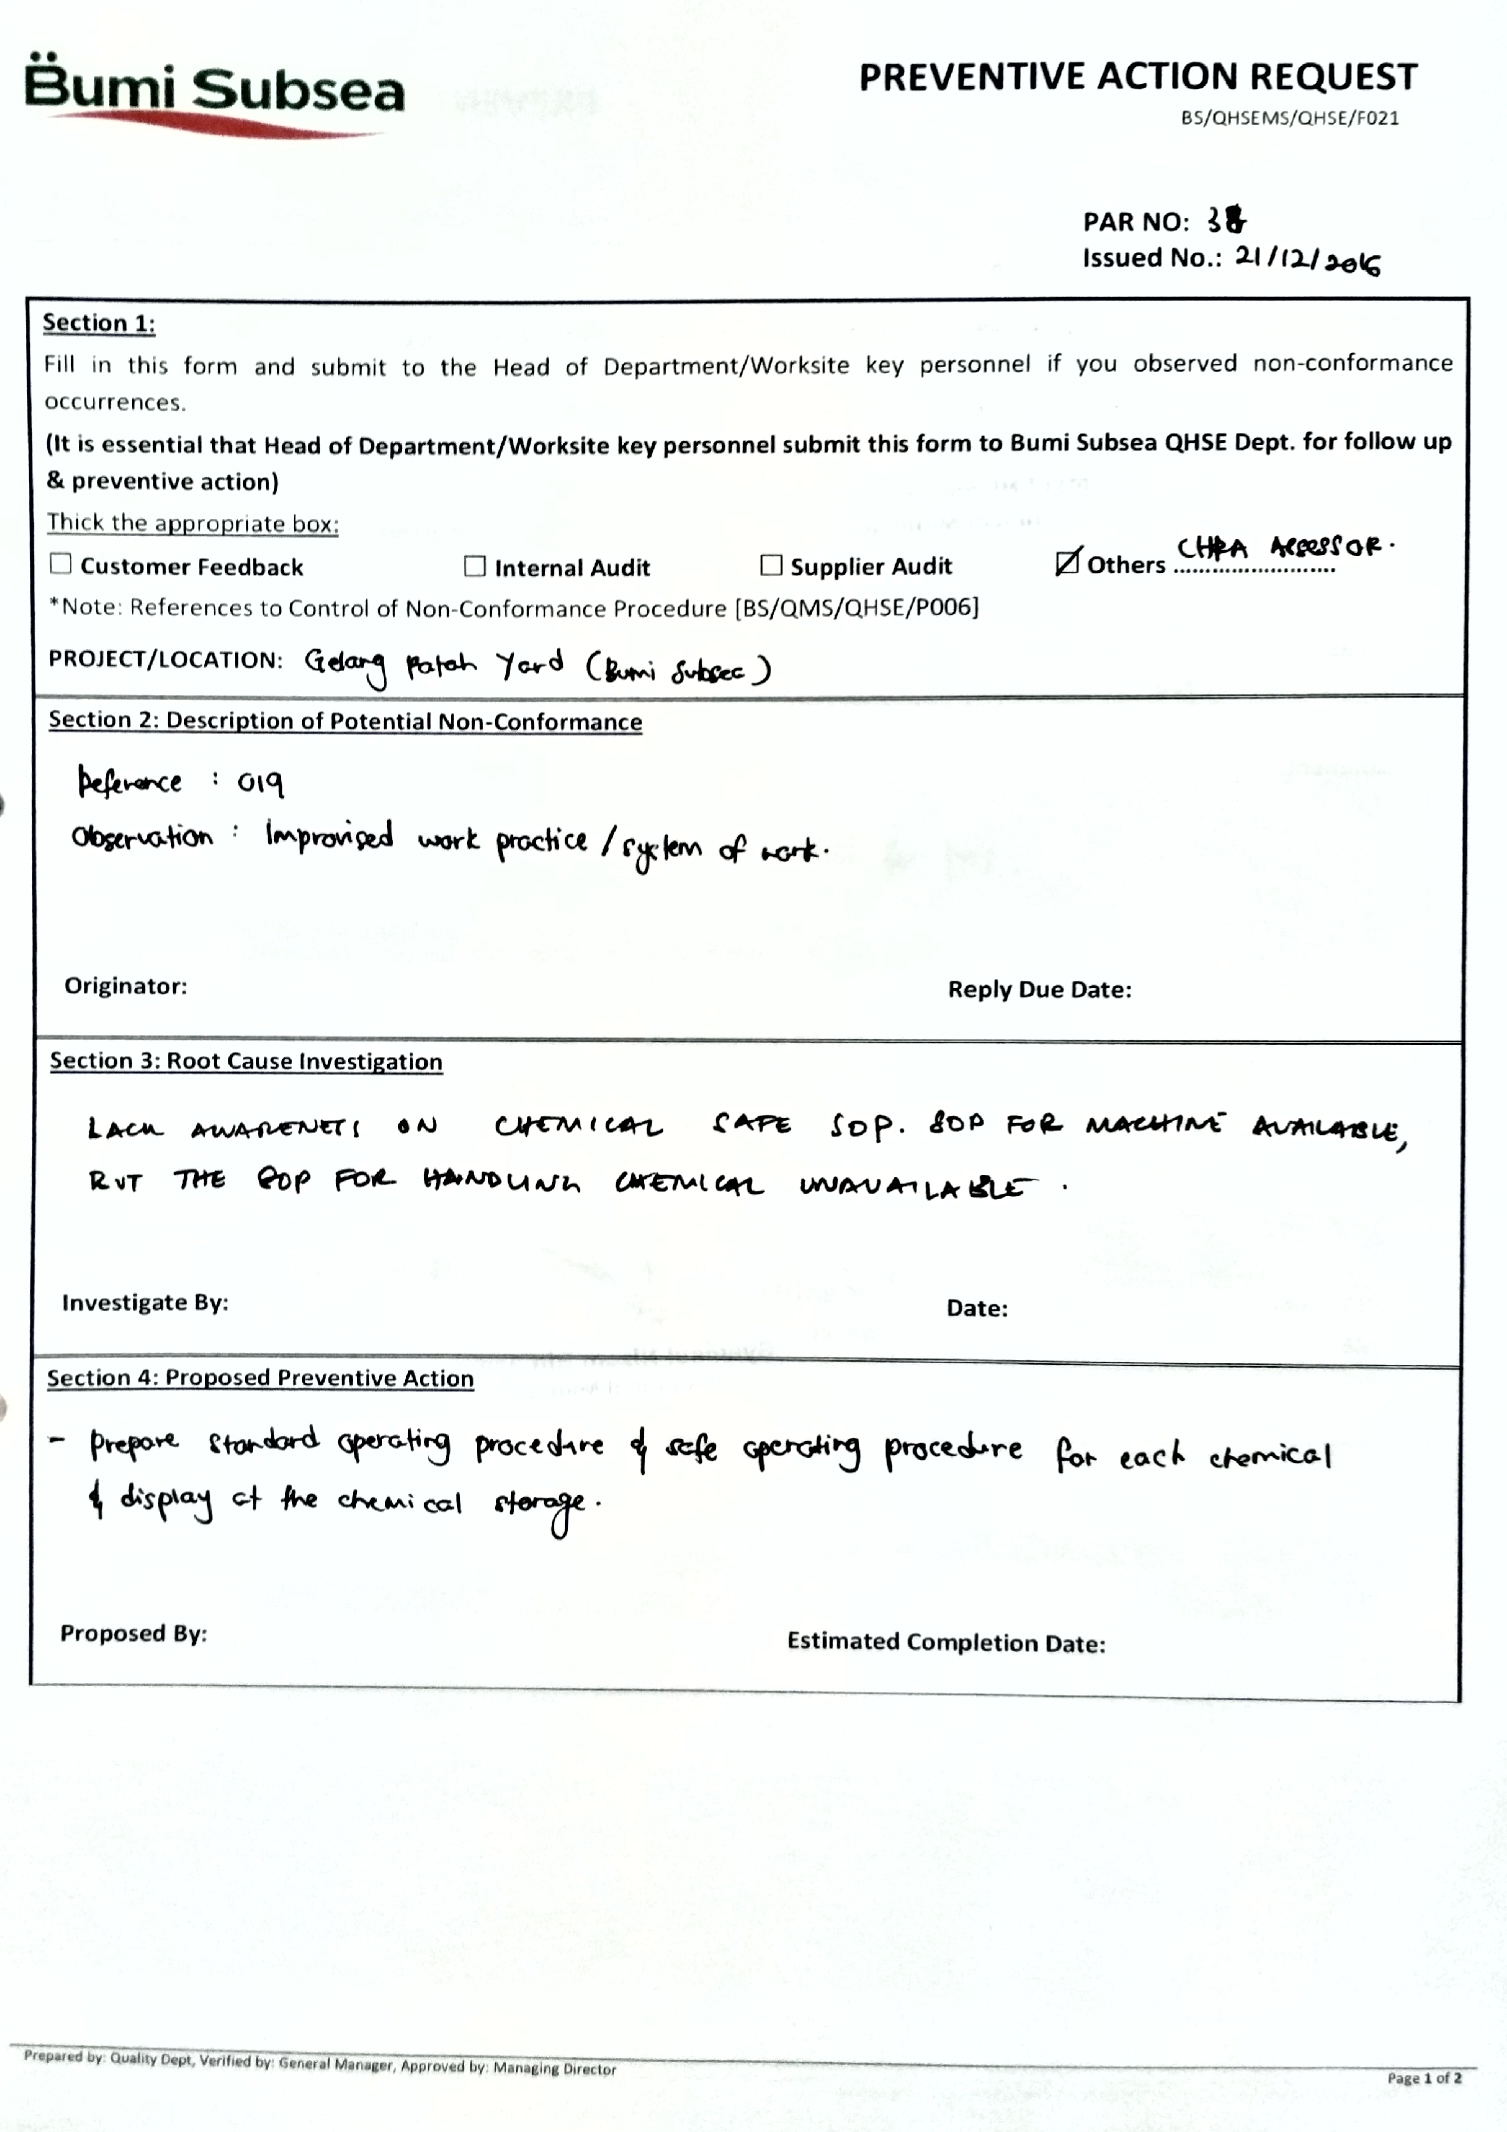 Bumi Subsea
PREVENTIVE ACTION REQUEST
BS/QHSEMS/QHSE/F021
PAR NO: 38
Issued No.: 21/12/2016
Section 1:
Fill in this form and submit to the Head of Department/Worksite key personnel if you observed non-conformance
occurrences.
(It is essential that Head of Department/Worksite key personnel submit this form to Bumi Subsea QHSE Dept. for follow up
& preventive action)
Thick the appropriate box:
Customer Feedback Internal Audit Supplier Audit Others CHRA Assessor.
*Note: References to Control of Non-Conformance Procedure [BS/QMS/QHSE/P006]
PROJECT/LOCATION: Gelang Patah Yard (Bumi Subsea)
Section 2: Description of Potential Non-Conformance
Reference : 019
Observation : Improvised work practice / system of work.
Originator: Reply Due Date:
Section 3: Root Cause Investigation
LACK AWARENESS ON CHEMICAL SAFE SOP. SOP FOR MACHINE AVAILABLE,
BUT THE SOP FOR HANDLING CHEMICAL UNAVAILABLE.
Investigate By: Date:
Section 4: Proposed Preventive Action
- Prepare standard operating procedure & safe operating procedure for each chemical
& display at the chemical storage.
Proposed By: Estimated Completion Date:
Prepared by: Quality Dept, Verified by: General Manager, Approved by: Managing Director
Page 1 of 2